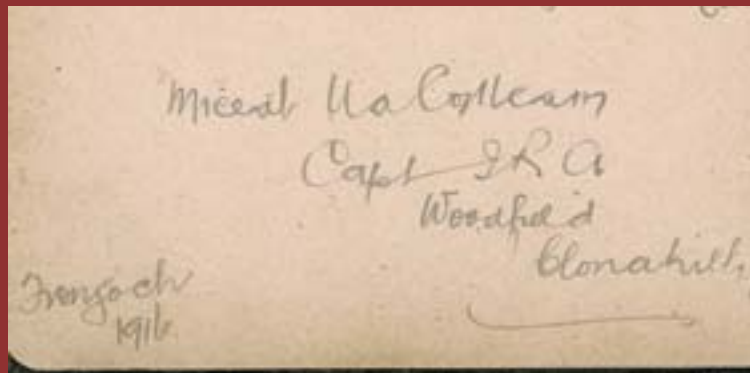 Miceál Ua Coileain
Capt I R A
Woodfield
Clonakilty.
Frongoch
1916